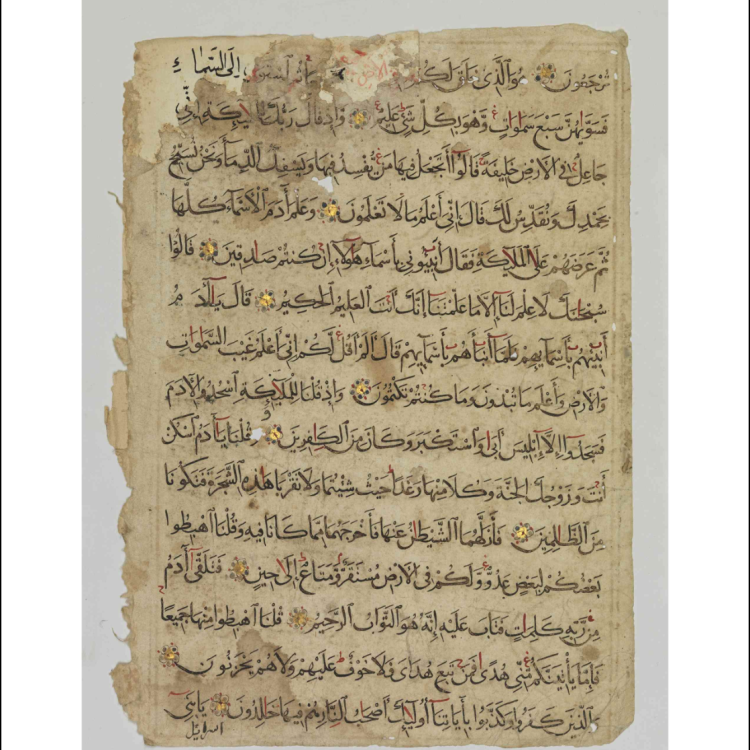 تُرْجَعُونَ هُوَ الَّذِى خَلَقَ لَكُمْ الْأَرْضِ ثُمَّ اسْتَوٰى إِلَى السَّمَاءِ
فَسَوّٰيهُنَّ سَبْعَ سَمٰوَاتٍ وَهُوَ بِكُلِّ شَيْءٍ عَلِيمٌ وَإِذْ قَالَ رَبُّكَ لِلْمَلٰئِكَةِ إِنِّى
جَاعِلٌ فِى الْأَرْضِ خَلِيفَةً قَالُوا أَتَجْعَلُ فِيهَا مَنْ يُفْسِدُ فِيهَا وَيَسْفِكُ الدِّمَاءَ وَنَحْنُ نُسَبِّحُ
بِحَمْدِكَ وَنُقَدِّسُ لَكَ قَالَ إِنِّى أَعْلَمُ مَا لَا تَعْلَمُونَ وَعَلَّمَ آدَمَ الْأَسْمَاءَ كُلَّهَا
ثُمَّ عَرَضَهُمْ عَلَى الْمَلٰئِكَةِ فَقَالَ أَنْبِئُونِى بِأَسْمَاءِ هٰؤُلَاءِ إِنْ كُنْتُمْ صَادِقِينَ قَالُوا
سُبْحَانَكَ لَا عِلْمَ لَنَا إِلَّا مَا عَلَّمْتَنَا إِنَّكَ أَنْتَ الْعَلِيمُ الْحَكِيمُ قَالَ يَا آدَمُ
أَنْبِئْهُمْ بِأَسْمَائِهِمْ فَلَمَّا أَنْبَأَهُمْ بِأَسْمَائِهِمْ قَالَ أَلَمْ أَقُلْ لَكُمْ إِنِّى أَعْلَمُ غَيْبَ السَّمٰوَاتِ
وَالْأَرْضِ وَأَعْلَمُ مَا تُبْدُونَ وَمَا كُنْتُمْ تَكْتُمُونَ وَإِذْ قُلْنَا لِلْمَلٰئِكَةِ اسْجُدُوا لِآدَمَ
فَسَجَدُوا إِلَّا إِبْلِيسَ أَبٰى وَاسْتَكْبَرَ وَكَانَ مِنَ الْكَافِرِينَ وَقُلْنَا يَا آدَمُ اسْكُنْ
أَنْتَ وَزَوْجُكَ الْجَنَّةَ وَكُلَا مِنْهَا رَغَدًا حَيْثُ شِئْتُمَا وَلَا تَقْرَبَا هٰذِهِ الشَّجَرَةَ فَتَكُونَا
مِنَ الظَّالِمِينَ فَأَزَلَّهُمَا الشَّيْطَانُ عَنْهَا فَأَخْرَجَهُمَا مِمَّا كَانَا فِيهِ وَقُلْنَا اهْبِطُوا
بَعْضُكُمْ لِبَعْضٍ عَدُوٌّ وَلَكُمْ فِى الْأَرْضِ مُسْتَقَرٌّ وَمَتَاعٌ إِلٰى حِينٍ فَتَلَقّٰى آدَمُ
مِنْ رَبِّهِ كَلِمَاتٍ فَتَابَ عَلَيْهِ إِنَّهُ هُوَ التَّوَّابُ الرَّحِيمُ قُلْنَا اهْبِطُوا مِنْهَا جَمِيعًا
فَإِمَّا يَأْتِيَنَّكُمْ مِنِّى هُدًى فَمَنْ تَبِعَ هُدَاىَ فَلَا خَوْفٌ عَلَيْهِمْ وَلَا هُمْ يَحْزَنُونَ
وَالَّذِينَ كَفَرُوا وَكَذَّبُوا بِآيَاتِنَا أُولٰئِكَ أَصْحَابُ النَّارِ هُمْ فِيهَا خَالِدُونَ يَا بَنِى
اسرايل